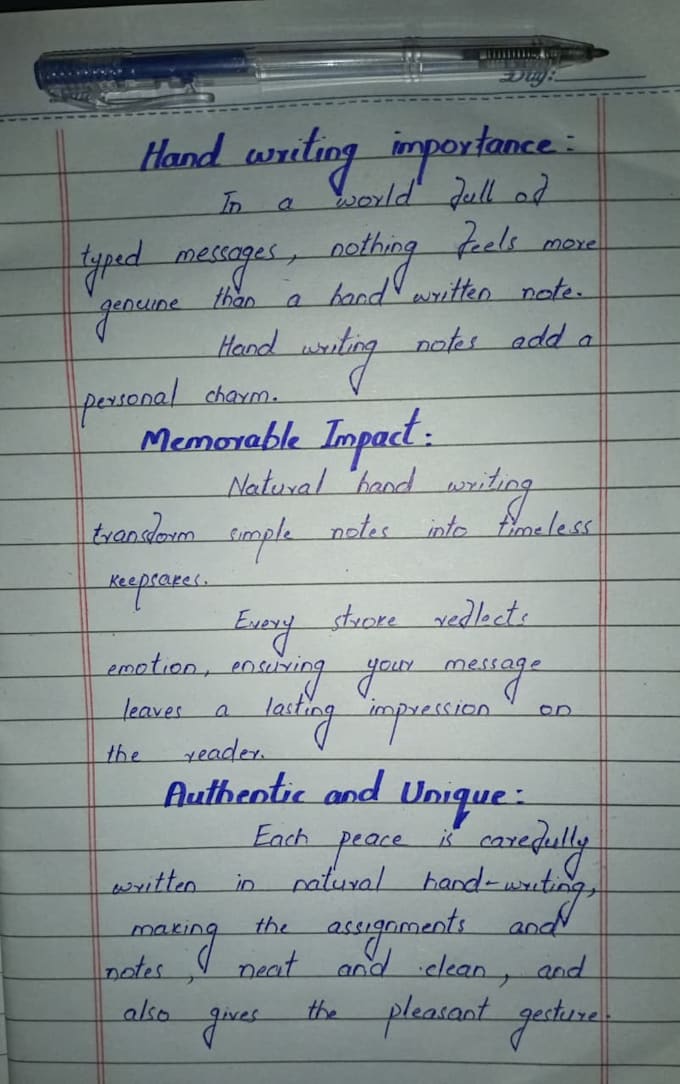 Day:
Hand writing importance:
In a world full of
typed messages, nothing feels more
genuine than a hand written note.
Hand writing notes add a
personal charm.
Memorable Impact:
Natural hand writing
transform simple notes into timeless
keepsakes.
Every stroke reflects
emotion, ensuring your message
leaves a lasting impression on
the reader.
Authentic and Unique:
Each peace is carefully
written in natural hand-writing,
making the assignments and
notes, neat and clean, and
also gives the pleasant gesture.